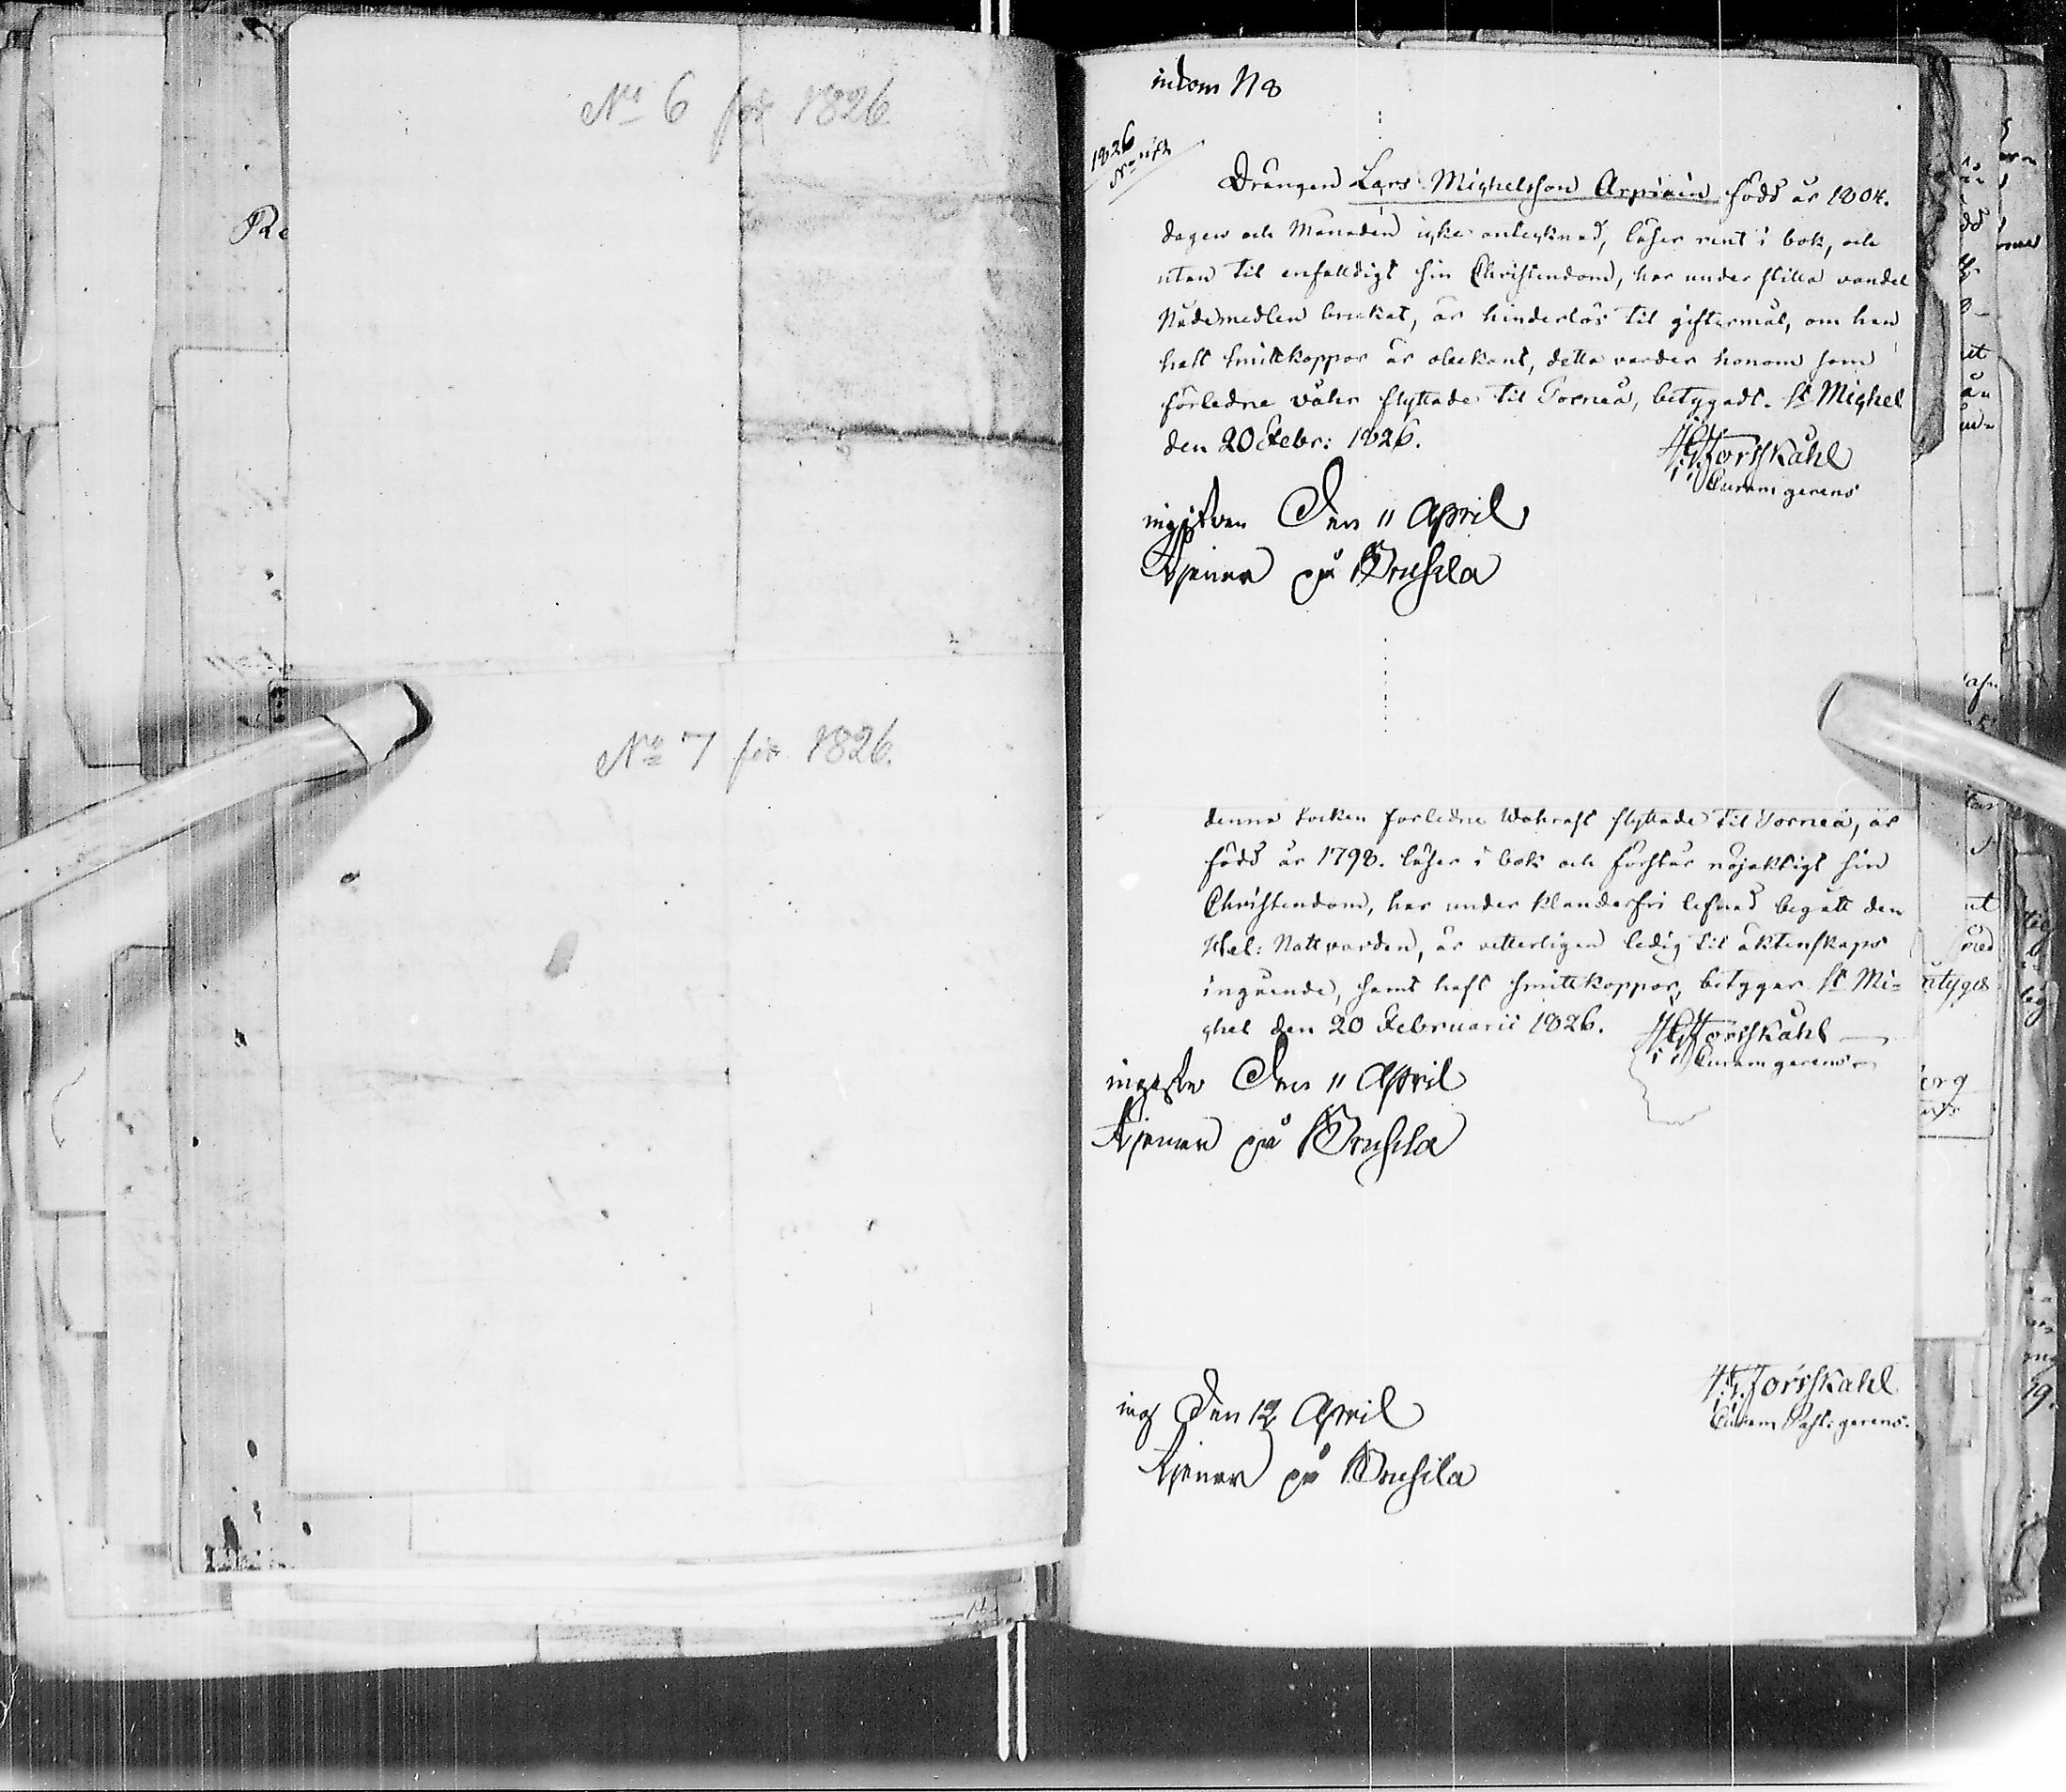 No 6 för 1826.
No 7 för 1826.
inkom N 8
1826
Drängen Lars Michelsson Arpiain född år 1804.
dagen och Månaden icke antecknad, läser rent i bok, och
utan til enfalldigt sin Christendom, har under stilla vandel
Nådemedlen brukat, är hinderlös til giftermål, om han
haft smittkoppor är obekant, detta varder honom som
förledne våhr flyttade til Torneå, betygadt. St Michel
den 20 Febr: 1826.
H G Forsskåhl
Curam gerens
ingifven Den 11 April
tjenar på Brusila
denna Socken forledne Wåhrast flyttade til Torneå, är
född år 1798. läser i bok och förstår nöjaktigt sin
Christendom, har under klanderfri lefnad begått den
Hel: Nattvarden, är vetterligen ledig til äktenskaps
ingående, samt haft smittkoppor, betygar St Mi-
chel den 20 Februarii 1826.
H G Forsskåhl
Curam gerens
ingifv Den 11 April
tjenar på Brusila
H. G. Forsskahl
Curam Past: gerens.
ing Den 12 April
tjenar på Brusila